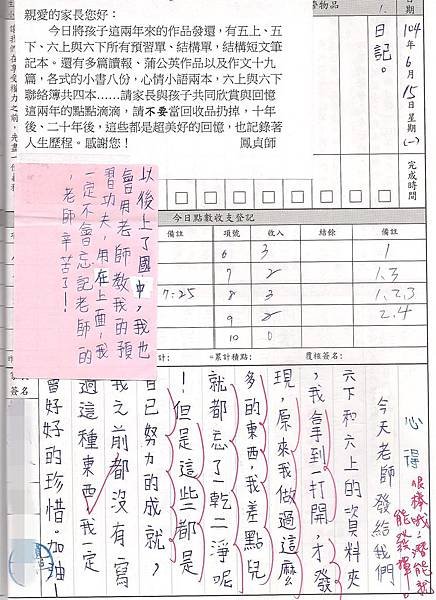 親愛的家長您好：
今日將孩子這兩年來的作品發還，有五上、五
下、六上與六下所有預習單、結構單，結構短文筆
記本。還有多篇讀報、蒲公英作品以及作文十九
篇，各式的小書八份，心情小語兩本，六上與六下
聯絡簿共四本……請家長與孩子共同欣賞與回憶
這兩年的點點滴滴，請不要當回收品扔掉，十年
後、二十年後，這些都是超美好的回憶，也記錄著
人生歷程。感謝您！ 鳳貞師
物品
1.
日記。
日期
104年6月15日星期(一)
完成時間
以後上了國中，我也
會用老師教我的預
習功夫，用在上面，我
一定不會忘記老師的
，老師辛苦了！
今日點數收支登記
備註 項號 收入 結餘 備註
6 3 1
7 2 1.3
7:25 8 3 1.2.3
9 2 2.4
10 0
計： 累計積點： 覆核簽名：
簽名
心得
今天老師發給我們
六下和六上的資料夾
，我拿到一打開，才發
現，原來我做過這麼
多的東西，我差點兒
就都忘了一乾二淨呢
！但是這些都是
自己努力的成就，
我之前都沒有寫
過這種東西，我一定
會好好的珍惜。加油！
很棒哦！潛能就
能發揮